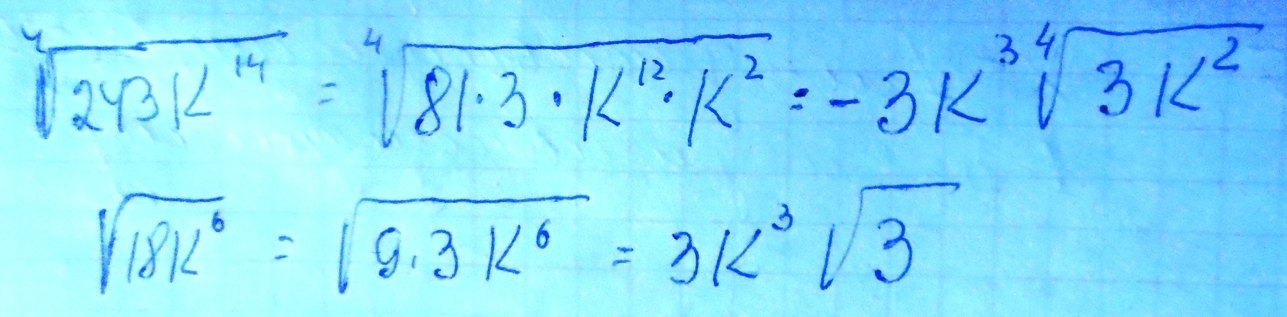 ⁴√243K¹⁴ = ⁴√81·3·K¹²·K² = -3K³ ⁴√3K²
√18K⁶ = √9.3K⁶ = 3K³ √3